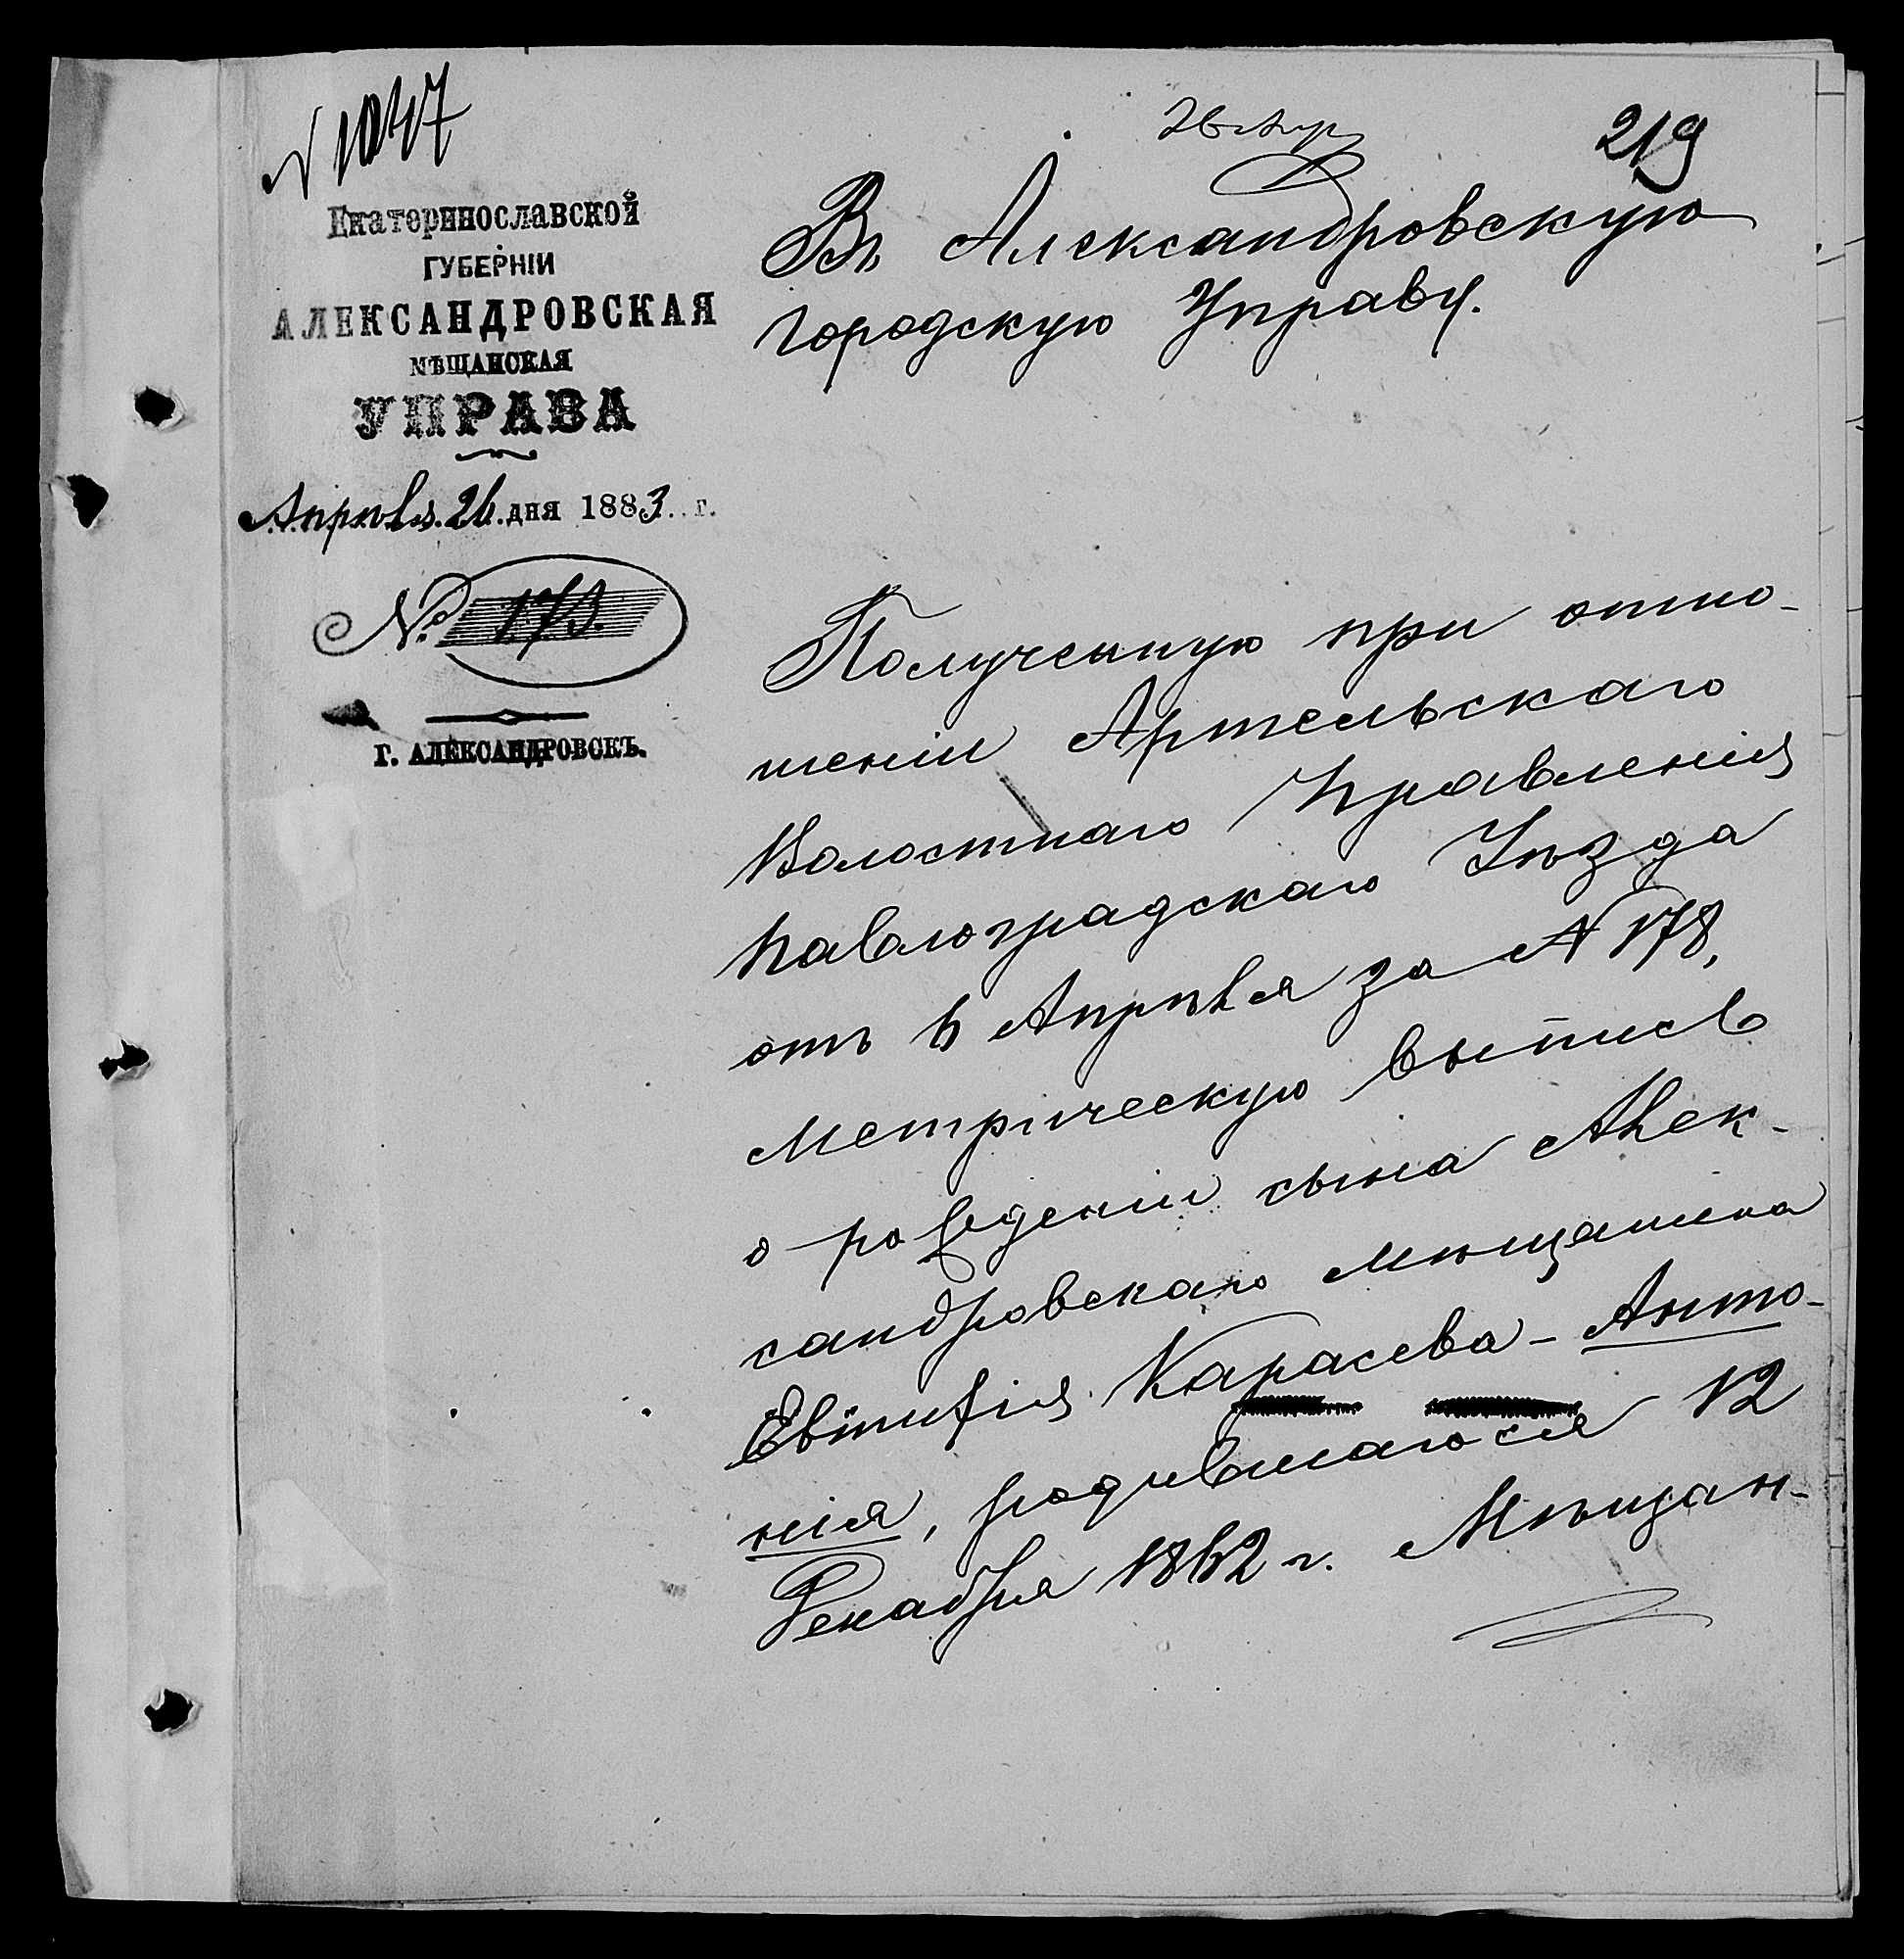 N 1047
26 Апр
219
Екатеринославской
ГУБЕРНІИ
АЛЕКСАНДРОВСКАЯ
МѢЩАНСКАЯ
УПРАВА
Апрѣля 26 дня 1883 г.
№ 173.
Г. АЛЕКСАНДРОВСКЪ.
Въ Александровскую
Городскую Управу.
Полученную при отно-
шеніи Артельскаго
Волостнаго Правленія
Павлоградскаго Уѣзда
отъ 6 Апрѣля за N 178,
метрическую выпись
о рожденіи сына Алек-
сандровскаго мѣщанина
Евтифія Карасева - Анто-
нія, родившагося 12
Декабря 1862 г. Мѣщан-